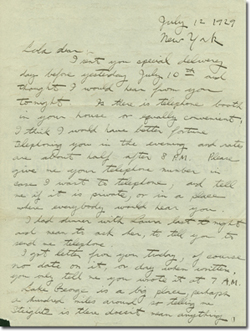 July 12 1929
New York
Lola dear:-
I sent you special delivery
day before yesterday July 10th and
thought I would hear from you
tonight Is there is telephone booth
in your house or equally convenient,
I think I would have better fortune
telephoning you in the evening and rates
are about half after 8 P.M. Please
give me your telephone number in
case I want to telephone, and tell
me if it is private, or in a place
where everybody would hear you.
I had dinner with last night
and near to ask her, to tell you to
send me telephone
I got letter from you today, of course
no date on it, or day when written,
you only tell me you wrote it at 7 A.M.
Lake George is a big place, perhaps
a hundred miles around so telling me
is there doesn't mean anything.